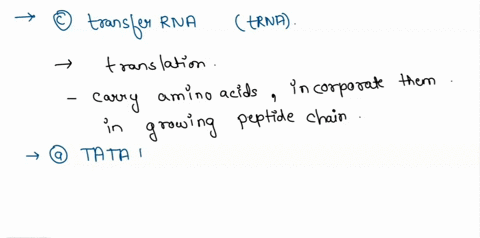 → ⓒ transfer RNA (tRNA).
→ translation.
- carry amino acids, incorporate them
in growing peptide chain.
→ ⓐ TATA